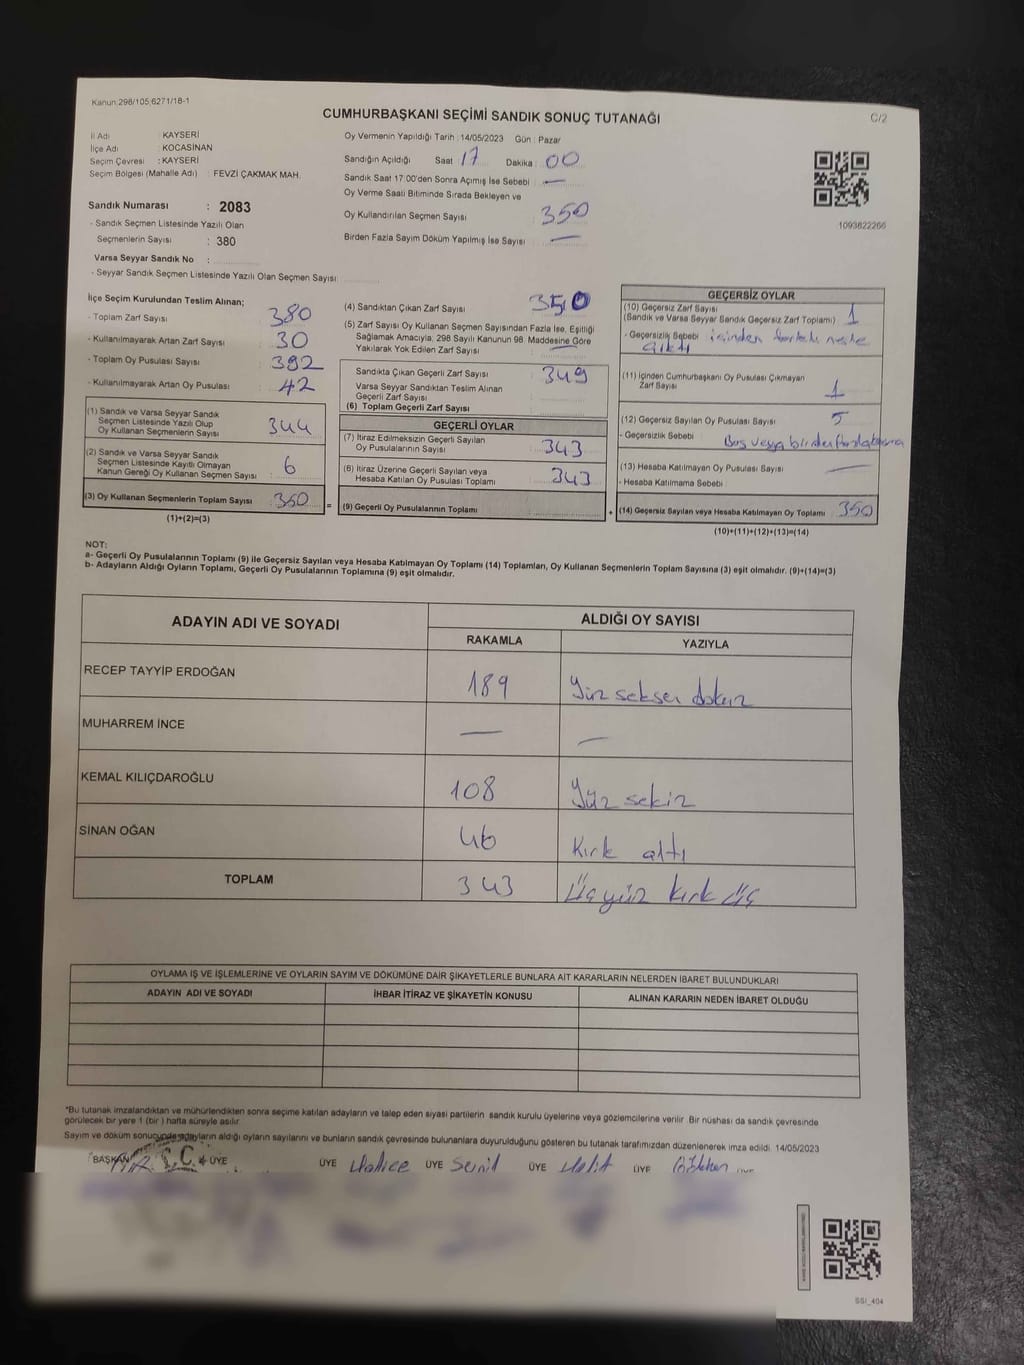 Kanun:298/105;6271/18-1
CUMHURBAŞKANI SEÇİMİ SANDIK SONUÇ TUTANAĞI
C/2
İl Adı : KAYSERİ
İlçe Adı : KOCASİNAN
Seçim Çevresi : KAYSERİ
Seçim Bölgesi (Mahalle Adı) FEVZİ ÇAKMAK MAH.
Sandık Numarası : 2083
- Sandık Seçmen Listesinde Yazılı Olan
Seçmenlerin Sayısı : 380
Varsa Seyyar Sandık No :
- Seyyar Sandık Seçmen Listesinde Yazılı Olan Seçmen Sayısı:
Oy Vermenin Yapıldığı Tarih : 14/05/2023 Gün : Pazar
Sandığın Açıldığı Saat 17 Dakika : 00
Sandık Saat 17:00'den Sonra Açımış İse Sebebi : —
Oy Verme Saati Bitiminde Sırada Bekleyen ve
Oy Kullandırılan Seçmen Sayısı 350
Birden Fazla Sayım Döküm Yapılmış İse Sayısı —
1093622266
İlçe Seçim Kurulundan Teslim Alınan;
- Toplam Zarf Sayısı : 380
- Kullanılmayarak Artan Zarf Sayısı : 30
- Toplam Oy Pusulası Sayısı : 392
- Kullanılmayarak Artan Oy Pusulası : 42
(1) Sandık ve Varsa Seyyar Sandık
Seçmen Listesinde Yazılı Olup
Oy Kullanan Seçmenlerin Sayısı : 344
(2) Sandık ve Varsa Seyyar Sandık
Seçmen Listesinde Kayıtlı Olmayan
Kanun Gereği Oy Kullanan Seçmen Sayısı : 6
(3) Oy Kullanan Seçmenlerin Toplam Sayısı : 350
(1)+(2)=(3)
(4) Sandıktan Çıkan Zarf Sayısı 350
(5) Zarf Sayısı Oy Kullanan Seçmen Sayısından Fazla İse, Eşitliği
Sağlamak Amacıyla, 298 Sayılı Kanunun 98. Maddesine Göre
Yakılarak Yok Edilen Zarf Sayısı —
Sandıkta Çıkan Geçerli Zarf Sayısı : 349
Varsa Seyyar Sandıktan Teslim Alınan
Geçerli Zarf Sayısı
(6) Toplam Geçerli Zarf Sayısı
GEÇERLİ OYLAR
(7) İtiraz Edilmeksizin Geçerli Sayılan
Oy Pusulalarının Sayısı : 343
(8) İtiraz Üzerine Geçerli Sayılan veya
Hesaba Katılan Oy Pusulası Toplamı : 343
(9) Geçerli Oy Pusulalarının Toplamı
GEÇERSİZ OYLAR
(10) Geçersiz Zarf Sayısı
(Sandık ve Varsa Seyyar Sandık Geçersiz Zarf Toplamı) : 1
- Geçersizlik Sebebi : içinden
çıktı
(11) İçinden Cumhurbaşkanı Oy Pusulası Çıkmayan
Zarf Sayısı 1
(12) Geçersiz Sayılan Oy Pusulası Sayısı : 5
- Geçersizlik Sebebi : Boş veya birden
(13) Hesaba Katılmayan Oy Pusulası Sayısı : —
- Hesaba Katılmama Sebebi :
(14) Geçersiz Sayılan veya Hesaba Katılmayan Oy Toplamı : 350
(10)+(11)+(12)+(13)=(14)
NOT:
a- Geçerli Oy Pusulalarının Toplamı (9) ile Geçersiz Sayılan veya Hesaba Katılmayan Oy Toplamı (14) Toplamları, Oy Kullanan Seçmenlerin Toplam Sayısına (3) eşit olmalıdır. (9)+(14)=(3)
b- Adayların Aldığı Oyların Toplamı, Geçerli Oy Pusulalarının Toplamına (9) eşit olmalıdır.
ADAYIN ADI VE SOYADI
ALDIĞI OY SAYISI
RAKAMLA YAZIYLA
RECEP TAYYİP ERDOĞAN 189 Yüz seksen dokuz
MUHARREM İNCE — —
KEMAL KILIÇDAROĞLU 108 Yüz sekiz
SİNAN OĞAN 46 Kırk altı
TOPLAM 343 Üçyüz kırk üç
OYLAMA İŞ VE İŞLEMLERİNE VE OYLARIN SAYIM VE DÖKÜMÜNE DAİR ŞİKAYETLERLE BUNLARA AİT KARARLARIN NELERDEN İBARET BULUNDUKLARI
ADAYIN ADI VE SOYADI İHBAR İTİRAZ VE ŞİKAYETİN KONUSU ALINAN KARARIN NEDEN İBARET OLDUĞU
*Bu tutanak imzalandıktan ve mühürlendikten sonra seçime katılan adayların ve talep eden siyasi partilerin sandık kurulu üyelerine veya gözlemcilerine verilir. Bir nüshası da sandık çevresinde
görülecek bir yere 1 (bir ) hafta süreyle asılır.
Sayım ve döküm sonucunda adayların aldığı oyların sayılarını ve bunların sandık çevresinde bulunanlara duyurulduğunu gösteren bu tutanak tarafımızdan düzenlenerek imza edildi. 14/05/2023
BAŞKAN T.C. ÜYE ÜYE Hatice ÜYE ÜYE Halit ÜYE Gökhan
SSI_404